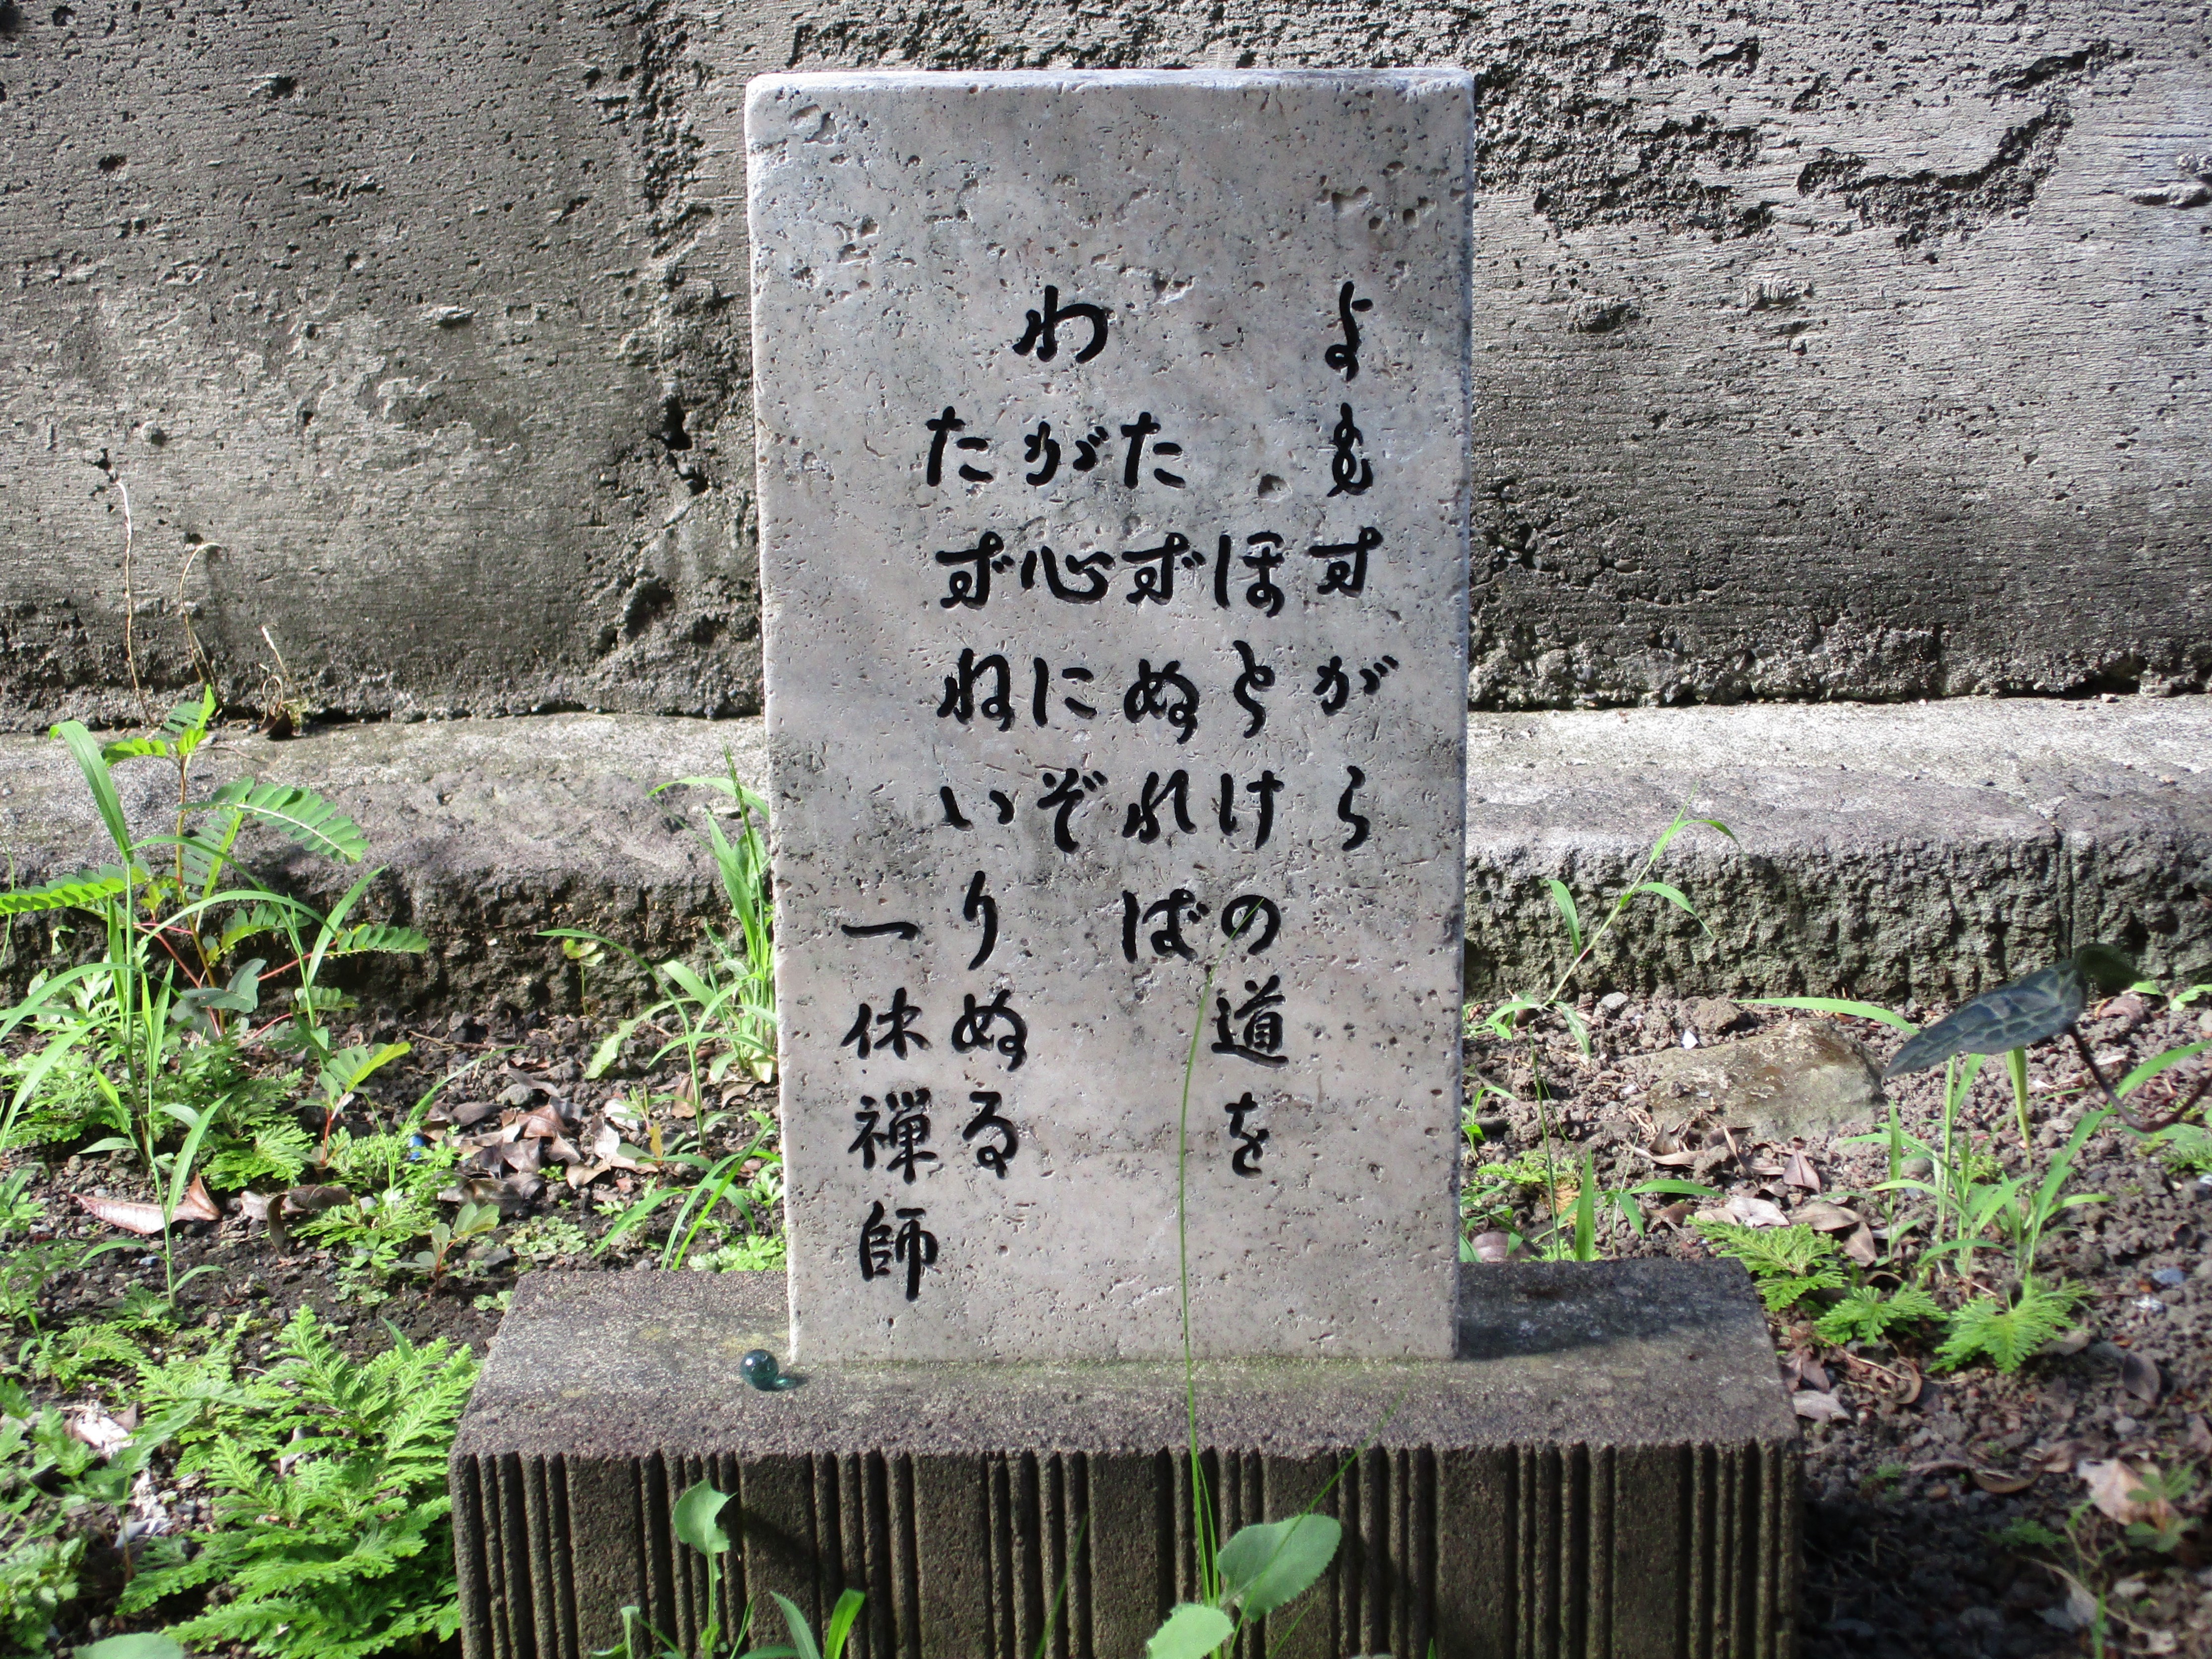 よもすがら
ほとけの道を
たずぬれば
わが心にぞ
たずねいりぬる
一休禅師